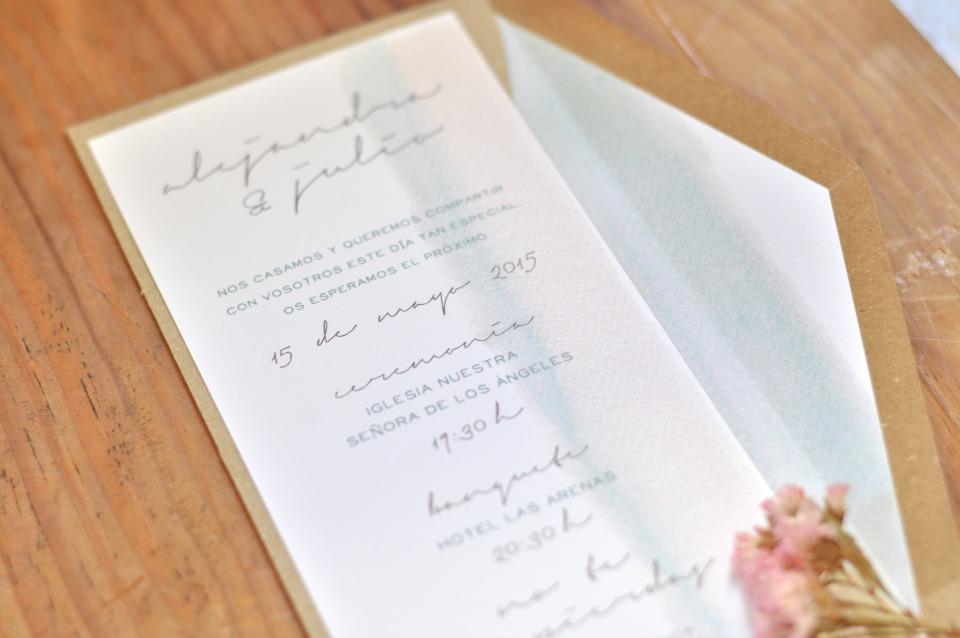 alejandra
& julio
NOS CASAMOS Y QUEREMOS COMPARTIR
CON VOSOTROS ESTE DÍA TAN ESPECIAL.
OS ESPERAMOS EL PRÓXIMO
15 de mayo 2015
ceremonia
IGLESIA NUESTRA
SEÑORA DE LOS ÁNGELES
banquete
HOTEL LAS ARENAS
20:30 h
no te
pierdas